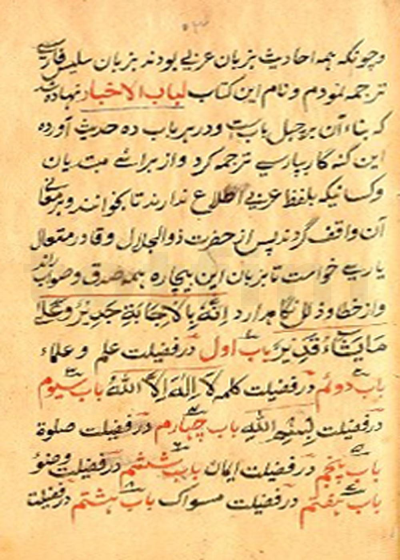 وچونکه همه احادیث بزبان عربی بودند بزبان سلیس فارسی
ترجمه نمودم و نام این کتاب لباب الاخبار نهاده شد
که بناء آن بر چهل باب است و در هر باب ده حدیث آورده
این گنه گار بپارسی ترجمه کرد و از برائے مبتدیان
وکسانیکه بلفظ عربی اطلاع ندارند تا بخوانند و بر معانی
آن واقف گردند پس از حضرت ذوالجلال و قادر متعال
یاری خواست تا بزبان این بیچاره همه صدق و صواب راند
و از خطا و ذلل نگاهدارد اِنَّهُ بِالاِجَابَةِ جَدِیْرٌ وَعَلیٰ
مَایَشَاءُ قَدِیْرٌ باب اول در فضیلت علم و علماء
باب دوئم در فضیلت کلمه لَا اِلٰهَ اِلَّا اللهُ باب سیوم
در فضیلت بِسْمِ اللهِ باب چهارم در فضیلت صلوة
باب پنجم در فضیلت ایمان باب ششم در فضیلت وضوُ
باب هفتم در فضیلت مسواک باب هشتم در فضیلت